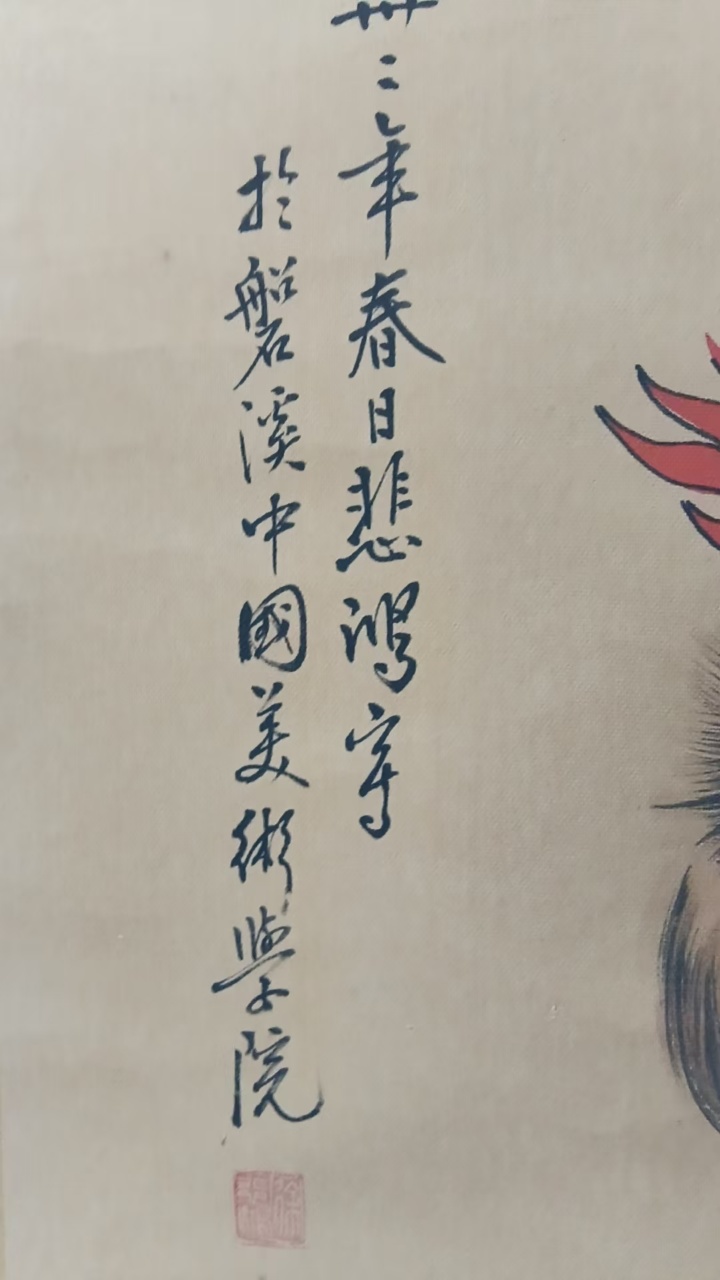 卅二年春日悲鴻寫
於磐溪中國美術學院